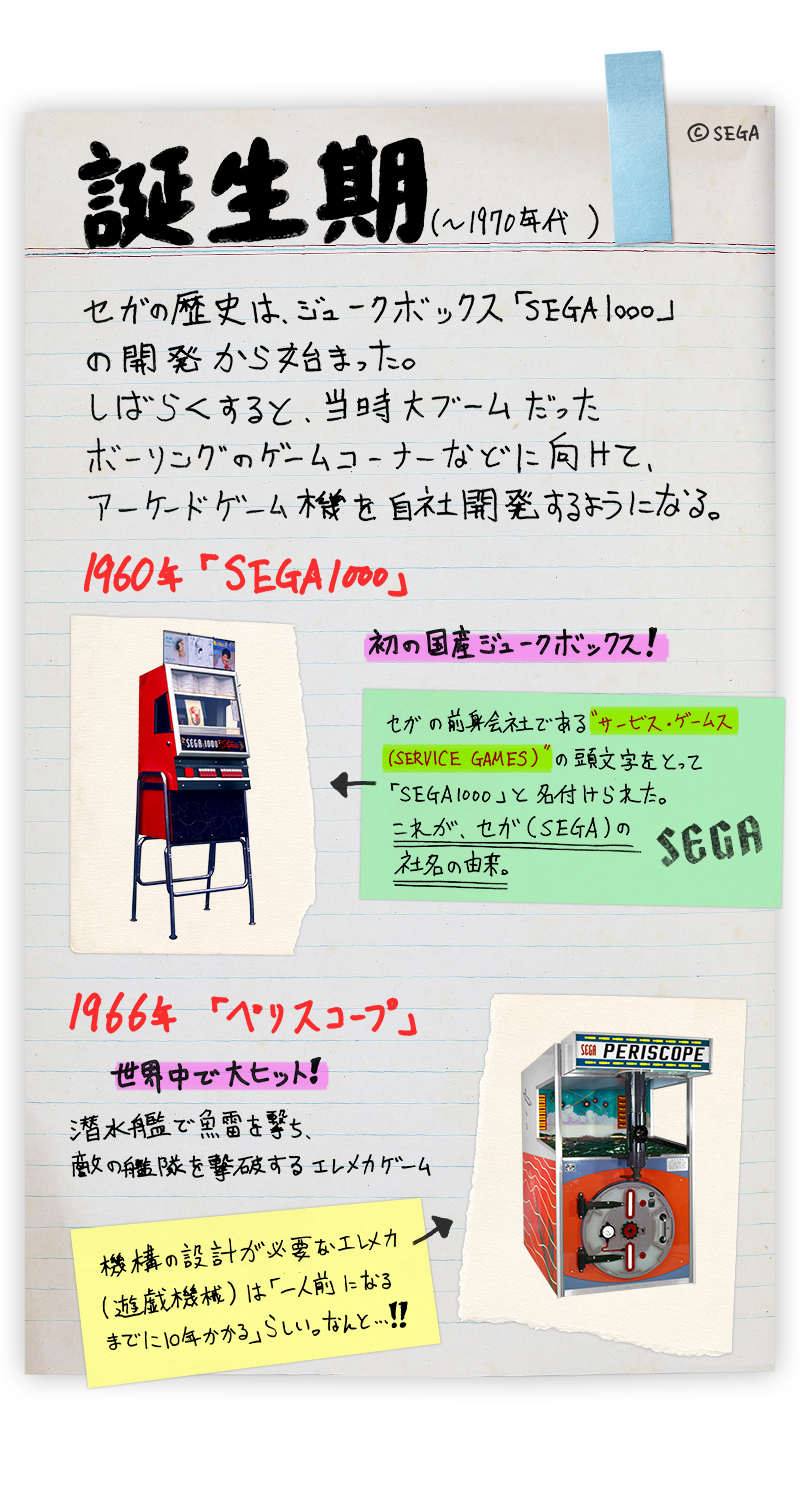 © SEGA
誕生期(～1970年代 )
セガの歴史は、ジュークボックス「SEGA1000」
の開発から始まった。
しばらくすると、当時大ブームだった
ボーリングのゲームコーナーなどに向けて、
アーケードゲーム機を自社開発するようになる。
1960年「SEGA1000」
初の国産ジュークボックス!
SEGA 1000
セガの前身会社である"サービス・ゲームス
(SERVICE GAMES)"の頭文字をとって
「SEGA1000」と名付けられた。
これが、セガ(SEGA)の
社名の由来。
SEGA
1966年「ペリスコープ」
世界中で大ヒット!
潜水艦で魚雷を撃ち、
敵の艦隊を撃破するエレメカゲーム
SEGA PERISCOPE
機構の設計が必要なエレメカ
(遊戯機械)は「一人前になる
までに10年かかる」らしい。なんと…!!